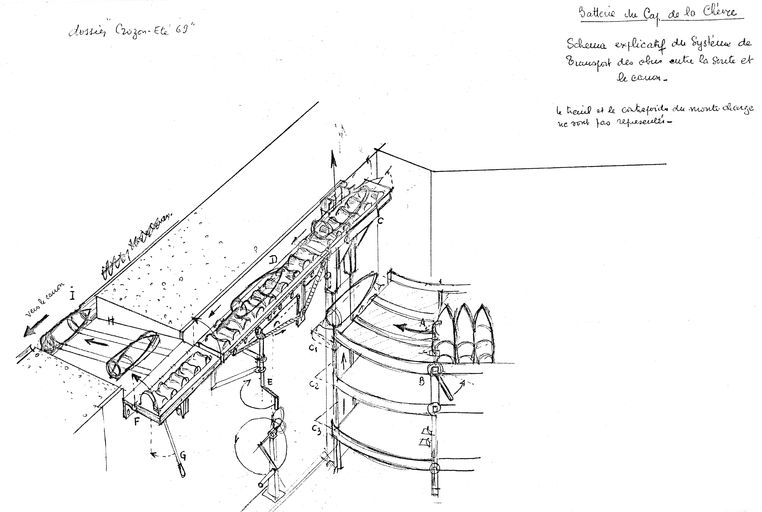 dossier "Crozon-Eté 69"
Batterie du Cap de la Chèvre
Schema explicatif du Système de
Transport des obus entre la Soute et
le canon.
le treuil et le contrepoids du monte charge
ne sont pas representés.
C
D
vers le canon
I
H
A
C1
B
C2
E
F
C3
G